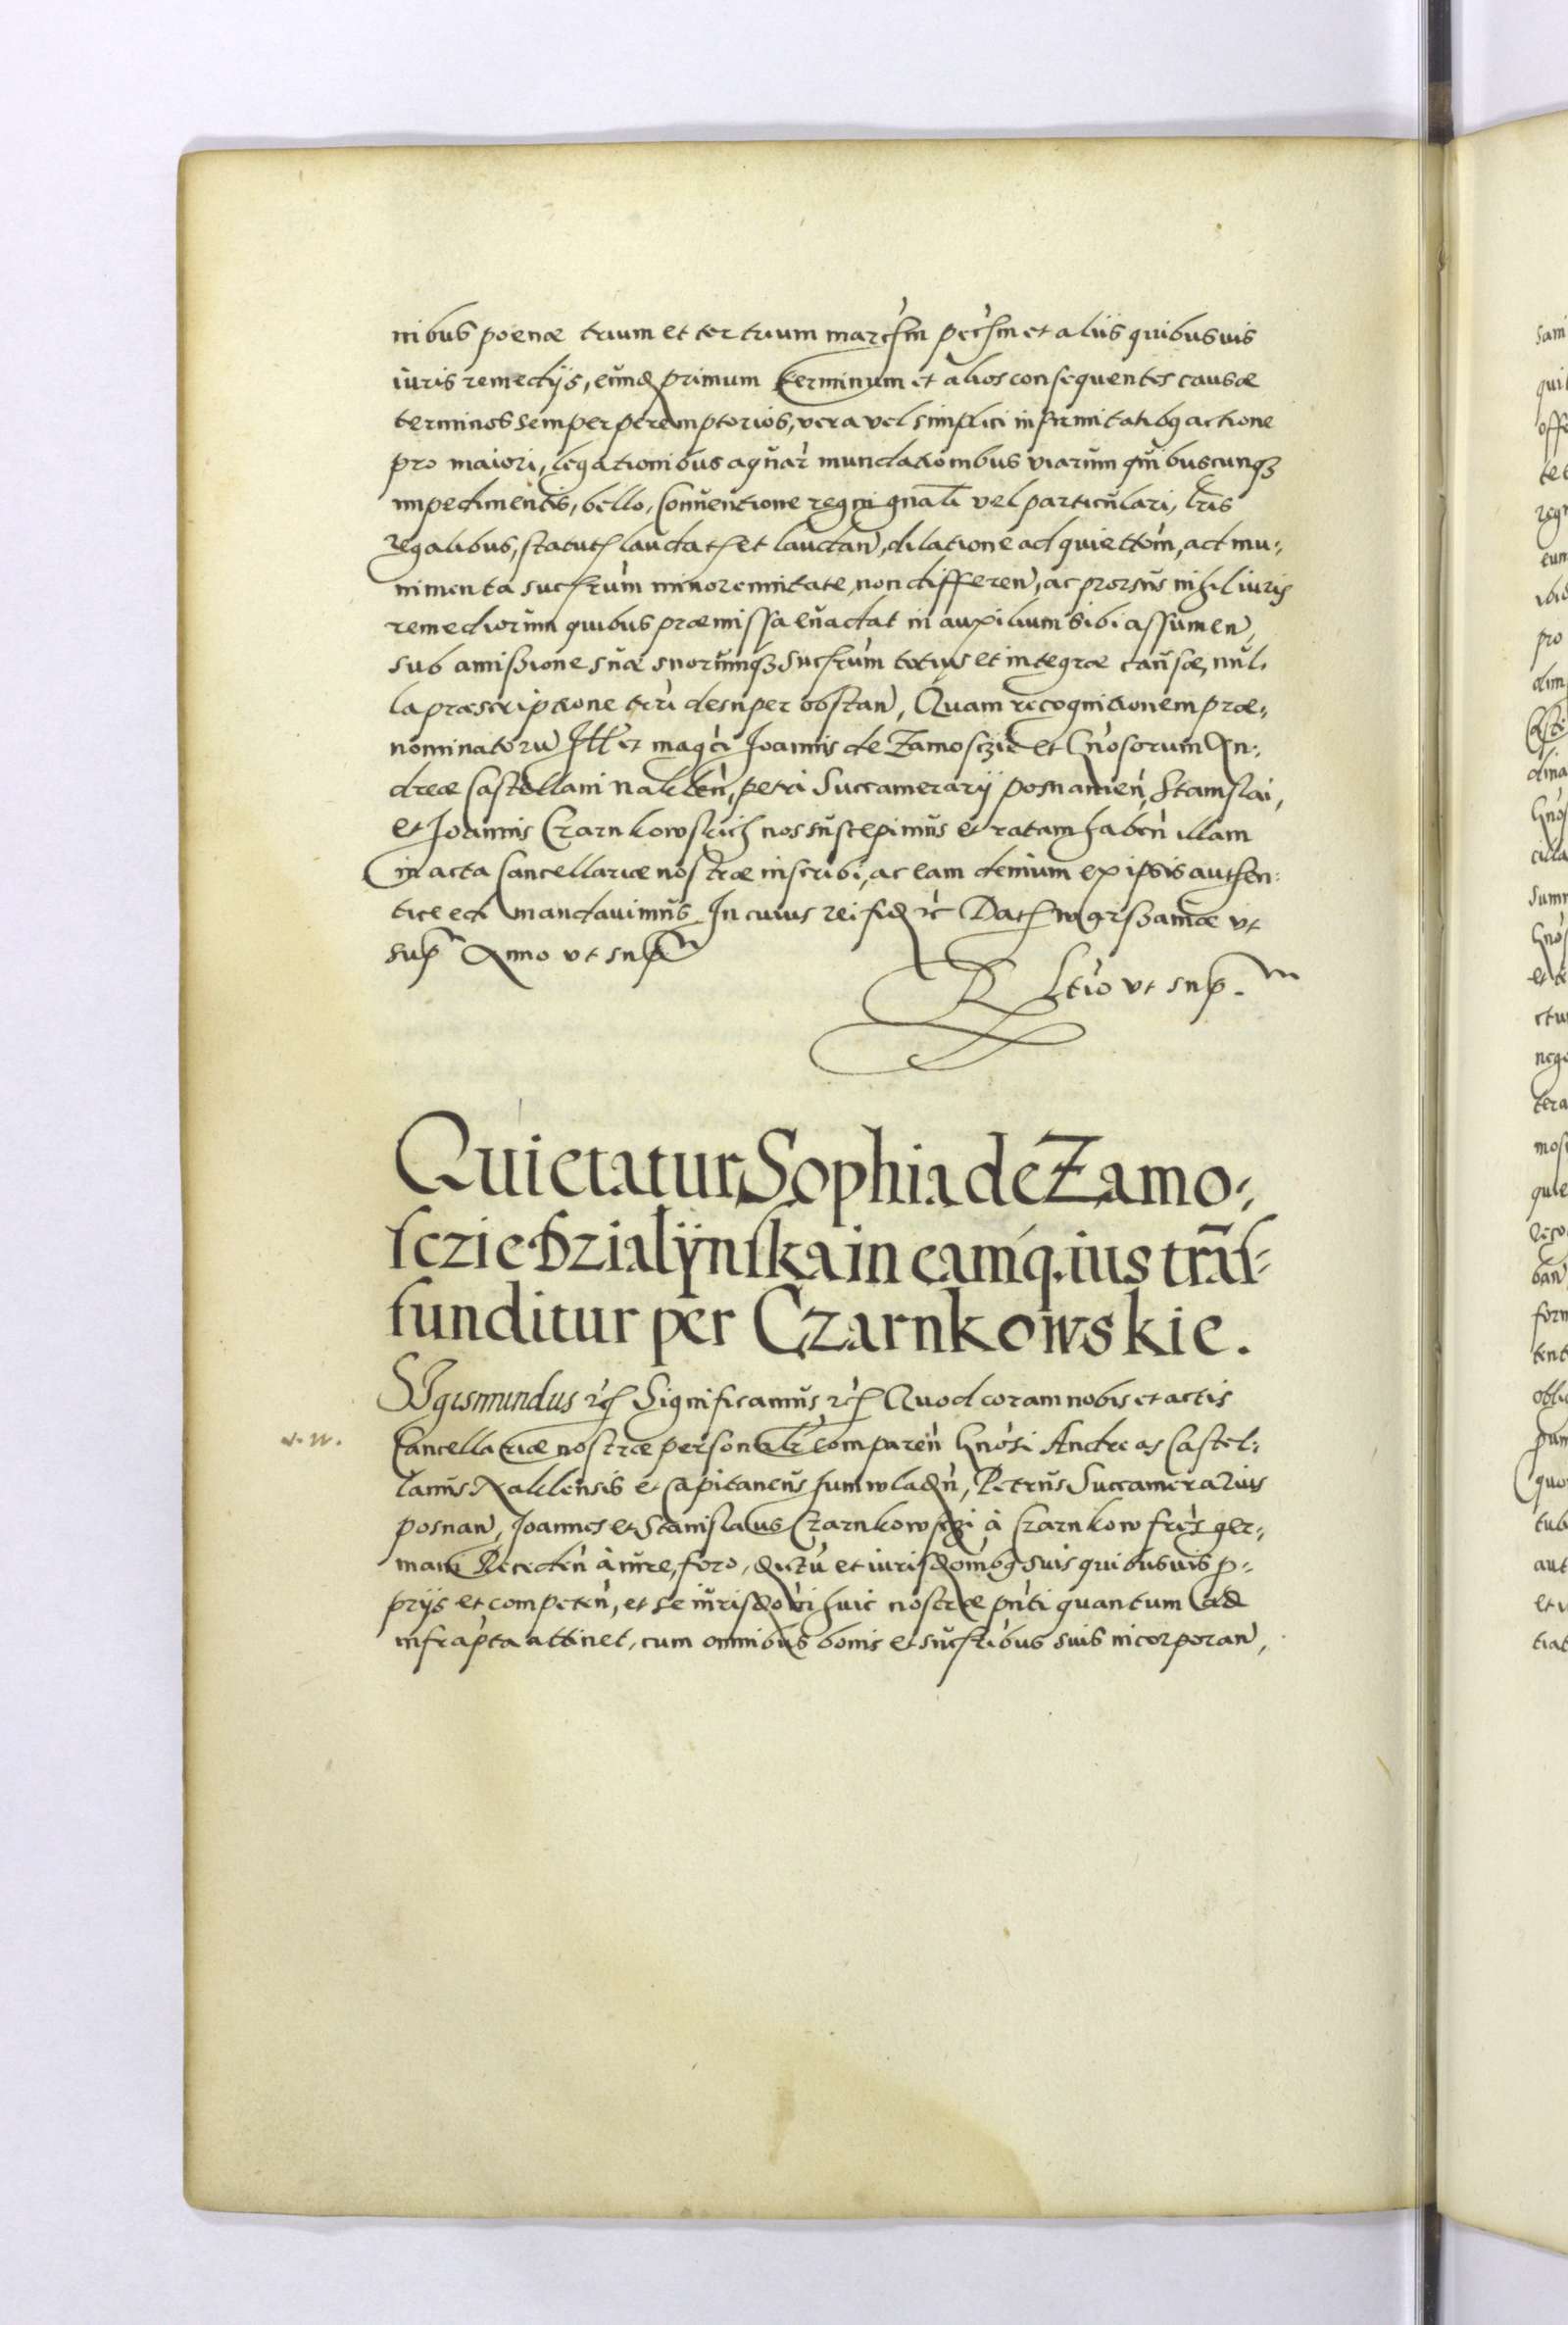 nibus poenae trium et ter trium marchm pechm et aliis quibusuis
iuris remedijs, eund primum terminum et alios consequentes causae
terminos semper peremptorios, vera vel simplici infirmitatibq actione
pro maiori, legationibus aquar mundationibus viarum quibuscunq
impedimentis, bello, Conuentione regni gnali vel particulari, lris
regalibus, statut laudat et laudan, dilatione ad quiettom, ad mu,
nimenta succrum minorennitate, non differen, ac prorsus nihil iuris
remediorum quibus praemissa euadat in auxilium sibi assumen,
sub amissione suae suorumq succrum totius et integrae causae, nul,
la praescriptione tri desuper obstan, Quam recognitionem prae,
nominatoru Ill et magci Joannis de Zamosczie et Gnosorum An,
dreae Castellani Naklen, Petri Succamerarij posnanien, Stanislai,
et Joannis Czarnkowskich nos suscepimus et ratam haben illam
in acta Cancellariae nostrae inscribi, ac eam demum ex ipsis authen,
tice edi mandauimus. In cuius rei fid rc Dat Warszauiae vt
sup Anno vt sup
Rltio vt sup.
Quietatur Sophia de Zamo,
sczie Dzialÿnska in eamq. ius trās,
funditur per Czarnkowskie.
Sigismundus rc Significamus rc Quod coram nobis et actis
v. w.
Cancellariae nostrae personalr comparen Gnosi Andreas Castel,
lanus Naklensis et Capitaneus Junwladn, Petrus Succamerarius
posnan, Joannes et Stanislaus Czarnkowsczi à Czarnkow fres ger,
mani Receden à iure, foro, dictu et iurisdombq suis quibusuis p,
prijs et competen, et se iurisdoni huic nostrae pnti quantum ad
infrapta attinet, cum omnibus bonis et succribus suis incorporan,